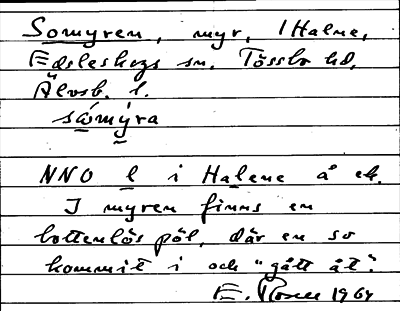 Somyren, myr, i Halne,
Edsleskogs sn. Tössbo hd,
Älvsb. l.
sómýra
NNO l i Halene å ek.
I myren finns en
bottenlös pöl, där en so
kommit i och "gått åt".
E. Rosell 1964